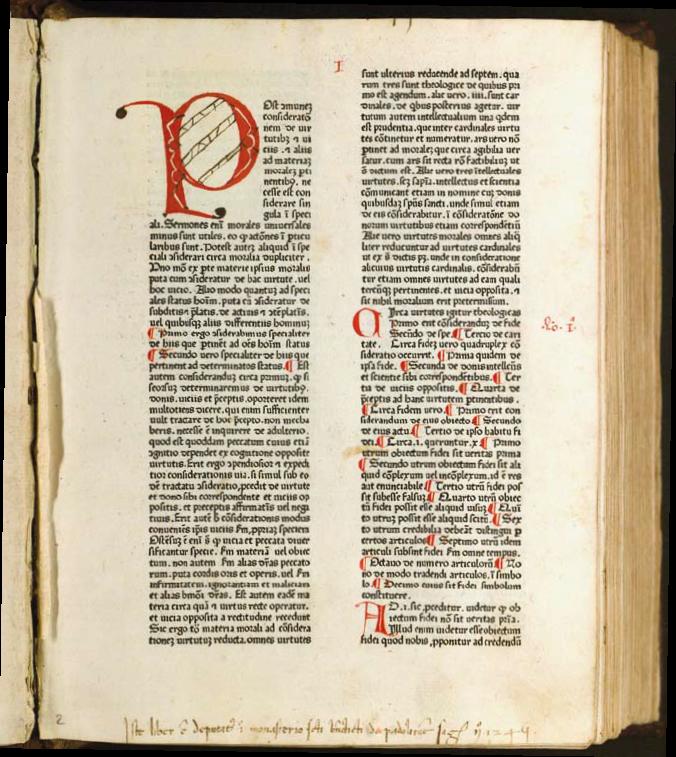 I
Post cõmunez
consideratõ
nem de uir
tutibȝ ⁊ ui
ciis ⁊ aliis
ad materiaȝ
moralẽ pti
nentibȝ. ne
cesse est con
siderare sin
gula ĩ speci
ali. Sermones enĩ morales uniuersales
minus sunt utiles. eo ꝙ actões ĩ pticu
laribus sunt. Potest autẽ aliquid ĩ spe
ciali ɔsiderari circa moralia dupliciter.
Uno mõ ex pte materie ipsius moralis
puta cum ɔsideratur de hac uirtute. uel
hoc uicio. Alio modo quantuȝ ad speci
ales status hoĩm. puta cũ ɔsideratur de
subditis ⁊ p̃latis. de actiuis ⁊ ɔtẽplatis̃.
uel quibusqȝ aliis differentiis hominuȝ
¶ Primo ergo ɔsiderabimus specialiter
de hiis que ptinẽt ad oẽs hoĩm status
¶ Secundo uero specialiter de hiis que
pertinent ad determinatos status. ¶ Est
autem considerandũ circa primuȝ. ꝙ si
seorsuȝ determinaremus de uirtutibȝ.
donis. uiciis et p̃ceptis. oporteret idem
multociens dicere. qui enim sufficienter
uult tractare de hoc p̃cepto. non mecha
beris. necesse ẽ inquirere de adulterio.
quod est quoddam peccatum cuius etiã
ɔgnitio dependet ex cognitione opposite
uirtutis. Erit ergo ɔpendiosior ⁊ expedi
tior considerationis uia. si simul sub eo
dẽ tractatu ɔsideratio, ꝓcedit de uirtute
et dono sibi correspondente et uiciis op
positis. et preceptis affirmatiĩs uel negi
tiuis. Erit autẽ h̃ cõsiderationis modus
conueniẽs ip̃is uiciis ẜm ꝓpriaȝ speciem
Ostẽsuȝ ẽ enĩ š ꝙ uicia et peccata diuer
sificantur specie. ẜm materiã uel obiec
tum. non autem ẜm alias dr̃as peccato
rum. puta cordis oris et operis. uel ẜm
infirmitatem. ignorantiam et maliciam
et alias hmõi dr̃as. Est autem eadẽ ma
teria circa quã ⁊ uirtus recte operatur.
et uicia opposita a rectitudine recedunt
Sic ergo tõ materia morali ad cõsidera
tionez uirtutuȝ reducta. omnes uirtutes
sunt ulterius reducende ad septem. qua
rum tres sunt theologice de quibus pri
mo est agendum. alie uero. iiii. sunt car
dinales. de qbus posterius agetur. uir
tutum autem intellectualium una qdem
est prudentia. que inter cardinales uirtu
tes cõtinetur et numeratur. ars uero nõ
ptinet ad moralez que circa agibilia uer
satur. cum ars sit recta rõ factibiliuȝ ut
š dictum est. Alie uero tres ĩtellectuales
uirtutes. scȝ sapĩa. intellectus et scientia
cõmunicant etiam in nomine cũ donis
quibusdaȝ spũs sancti. unde simul etiam
de eis cõsiderabitur. ĩ cõsideratõne do
norum uirtutibus etiam correspondẽtiũ
Alie uero uirtutes morales omnes aliq̃
liter reducuntur ad uirtutes cardinales
ut ex š dictis pȝ. unde in consideratione
alicuius uirtutis cardinalis. cõsiderabũ
tur etiam omnes uirtutes ad eam quali
tercũqȝ ptinentes. et uicia opposita. et
sic nihil moralium erit pretermissum.
Circa uirtutes igitur theologicas
Primo erit cõsiderandũ de fide
Secũdo de spe ¶ Tercio de cari
tate. Circa fidez uero quadruplex cõ
sideratio occurrit. ¶ Prima quidem de
ipsa fide. ¶ Secunda de donis intellcũs
et scientie sibi correspondẽtibus. ¶ Ter
tia de uiciis oppositis. ¶ Quarta de
p̃ceptis ad hanc uirtutem ptinentibus.
¶ Circa fidem uero. ¶ Primo erit con
siderandum de eius obiecto ¶ Secundo
de eius actu. ¶ Tercio de ipso habitu fi
dei. ¶ Circa. i. queruntur. x ¶ Primo
utrum obiectum fidei sit ueritas prima
¶ Secundo utrum obiectum fidei sit ali
quid cõplexum uel incõplexum. id ẽ res
aut enunciabile ¶ Tertio utrũ fidei pos
sit subesse falsuȝ ¶ Quarto utrũ obiec
tũ fidei possit esse aliquid uisuȝ ¶ Quĩ
to utruȝ possit esse aliquid scitũ. ¶ Sex
to utrum credibilia debeãt distingui p
certos articulos ¶ Septimo utrũ idem
articuli subsint fidei ẜm omne tempus.
¶ Octauo de numero articulorũ ¶ No
no de modo tradendi articulos. ĩ simbo
lo ¶ Decimo cuius sit fidei simbolum
constituere.
AD. i. sic, ꝓceditur. uidetur ꝙ ob
iectum fidei nõ sit ueritas prĩa.
Illud enim uidetur esse obiectum
fidei quod nobis, ꝓponitur ad credendũ
2
Iste liber ẽ deputatꝰ ĩ monasterio scti bñdicti